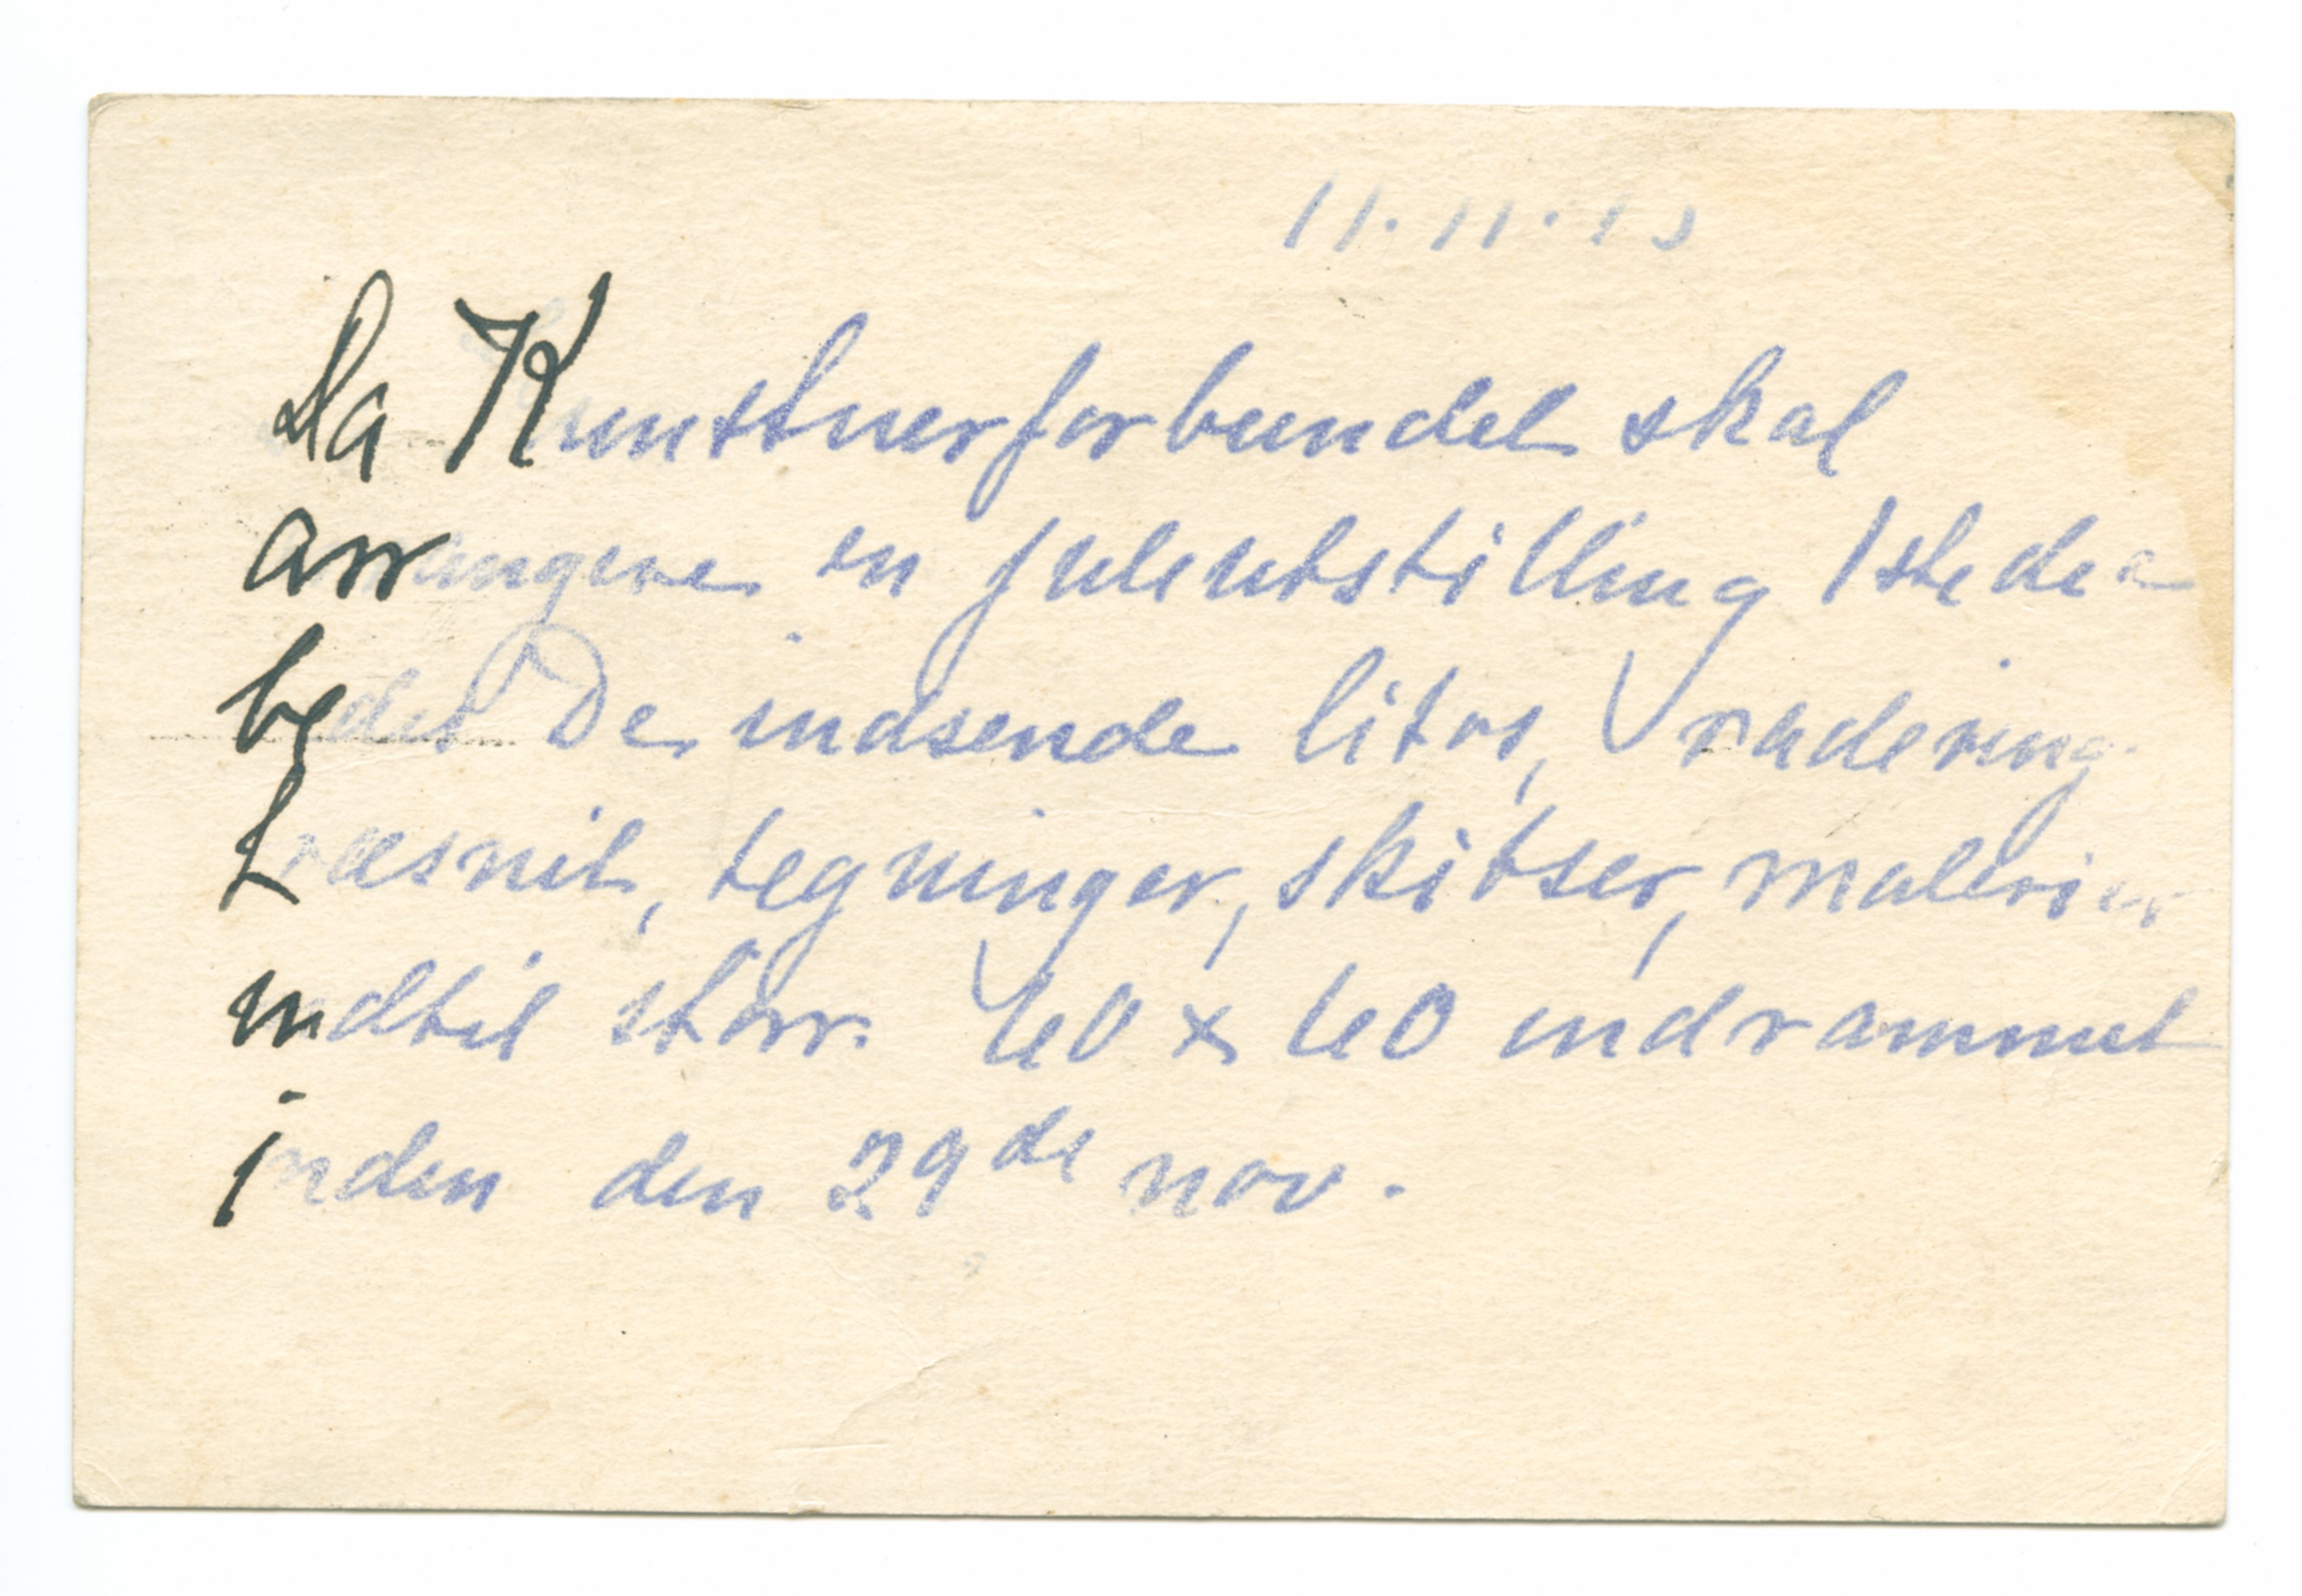 11.11.13
Da Kunstnerforbundet skal
arrangere en juleutstilling 1ste dec
bedes De indsende litos, radering
træsnit, tegninger, skitser, malerier
indtil størr. 60 x 60 indrammet
inden den 29de nov.